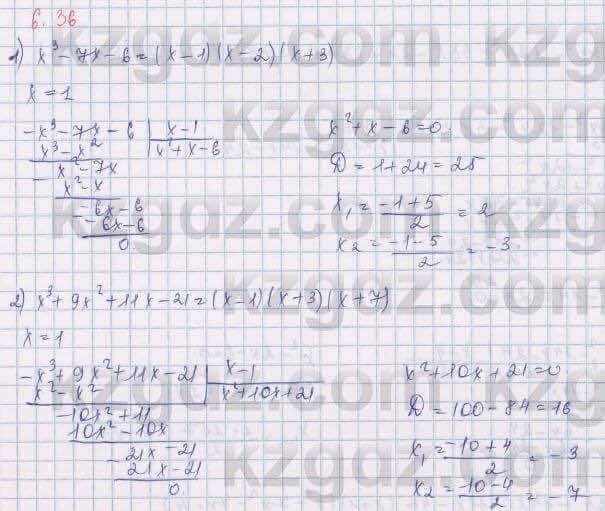 6.36
1) x³-7x-6=(x-1)(x-2)(x+3)
x=1
-x³-7x-6 | x-1
x³-x² | x²+x-6
- x²-7x
x²-x
- -6x-6
-6x-6
0
x²+x-6=0
D=1+24=25
x₁=(-1+5)/2=2
x₂=(-1-5)/2=-3
2) x³+9x²+11x-21=(x-1)(x+3)(x+7)
x=1
-x³+9x²+11x-21 | x-1
x²-x² | x²+10x+21
-10x²+11
10x²-10x
- 21x-21
21x-21
0
x²+10x+21=0
D=100-84=16
x₁=(-10+4)/2=-3
x₂=(-10-4)/2=-7
kzgdz.com